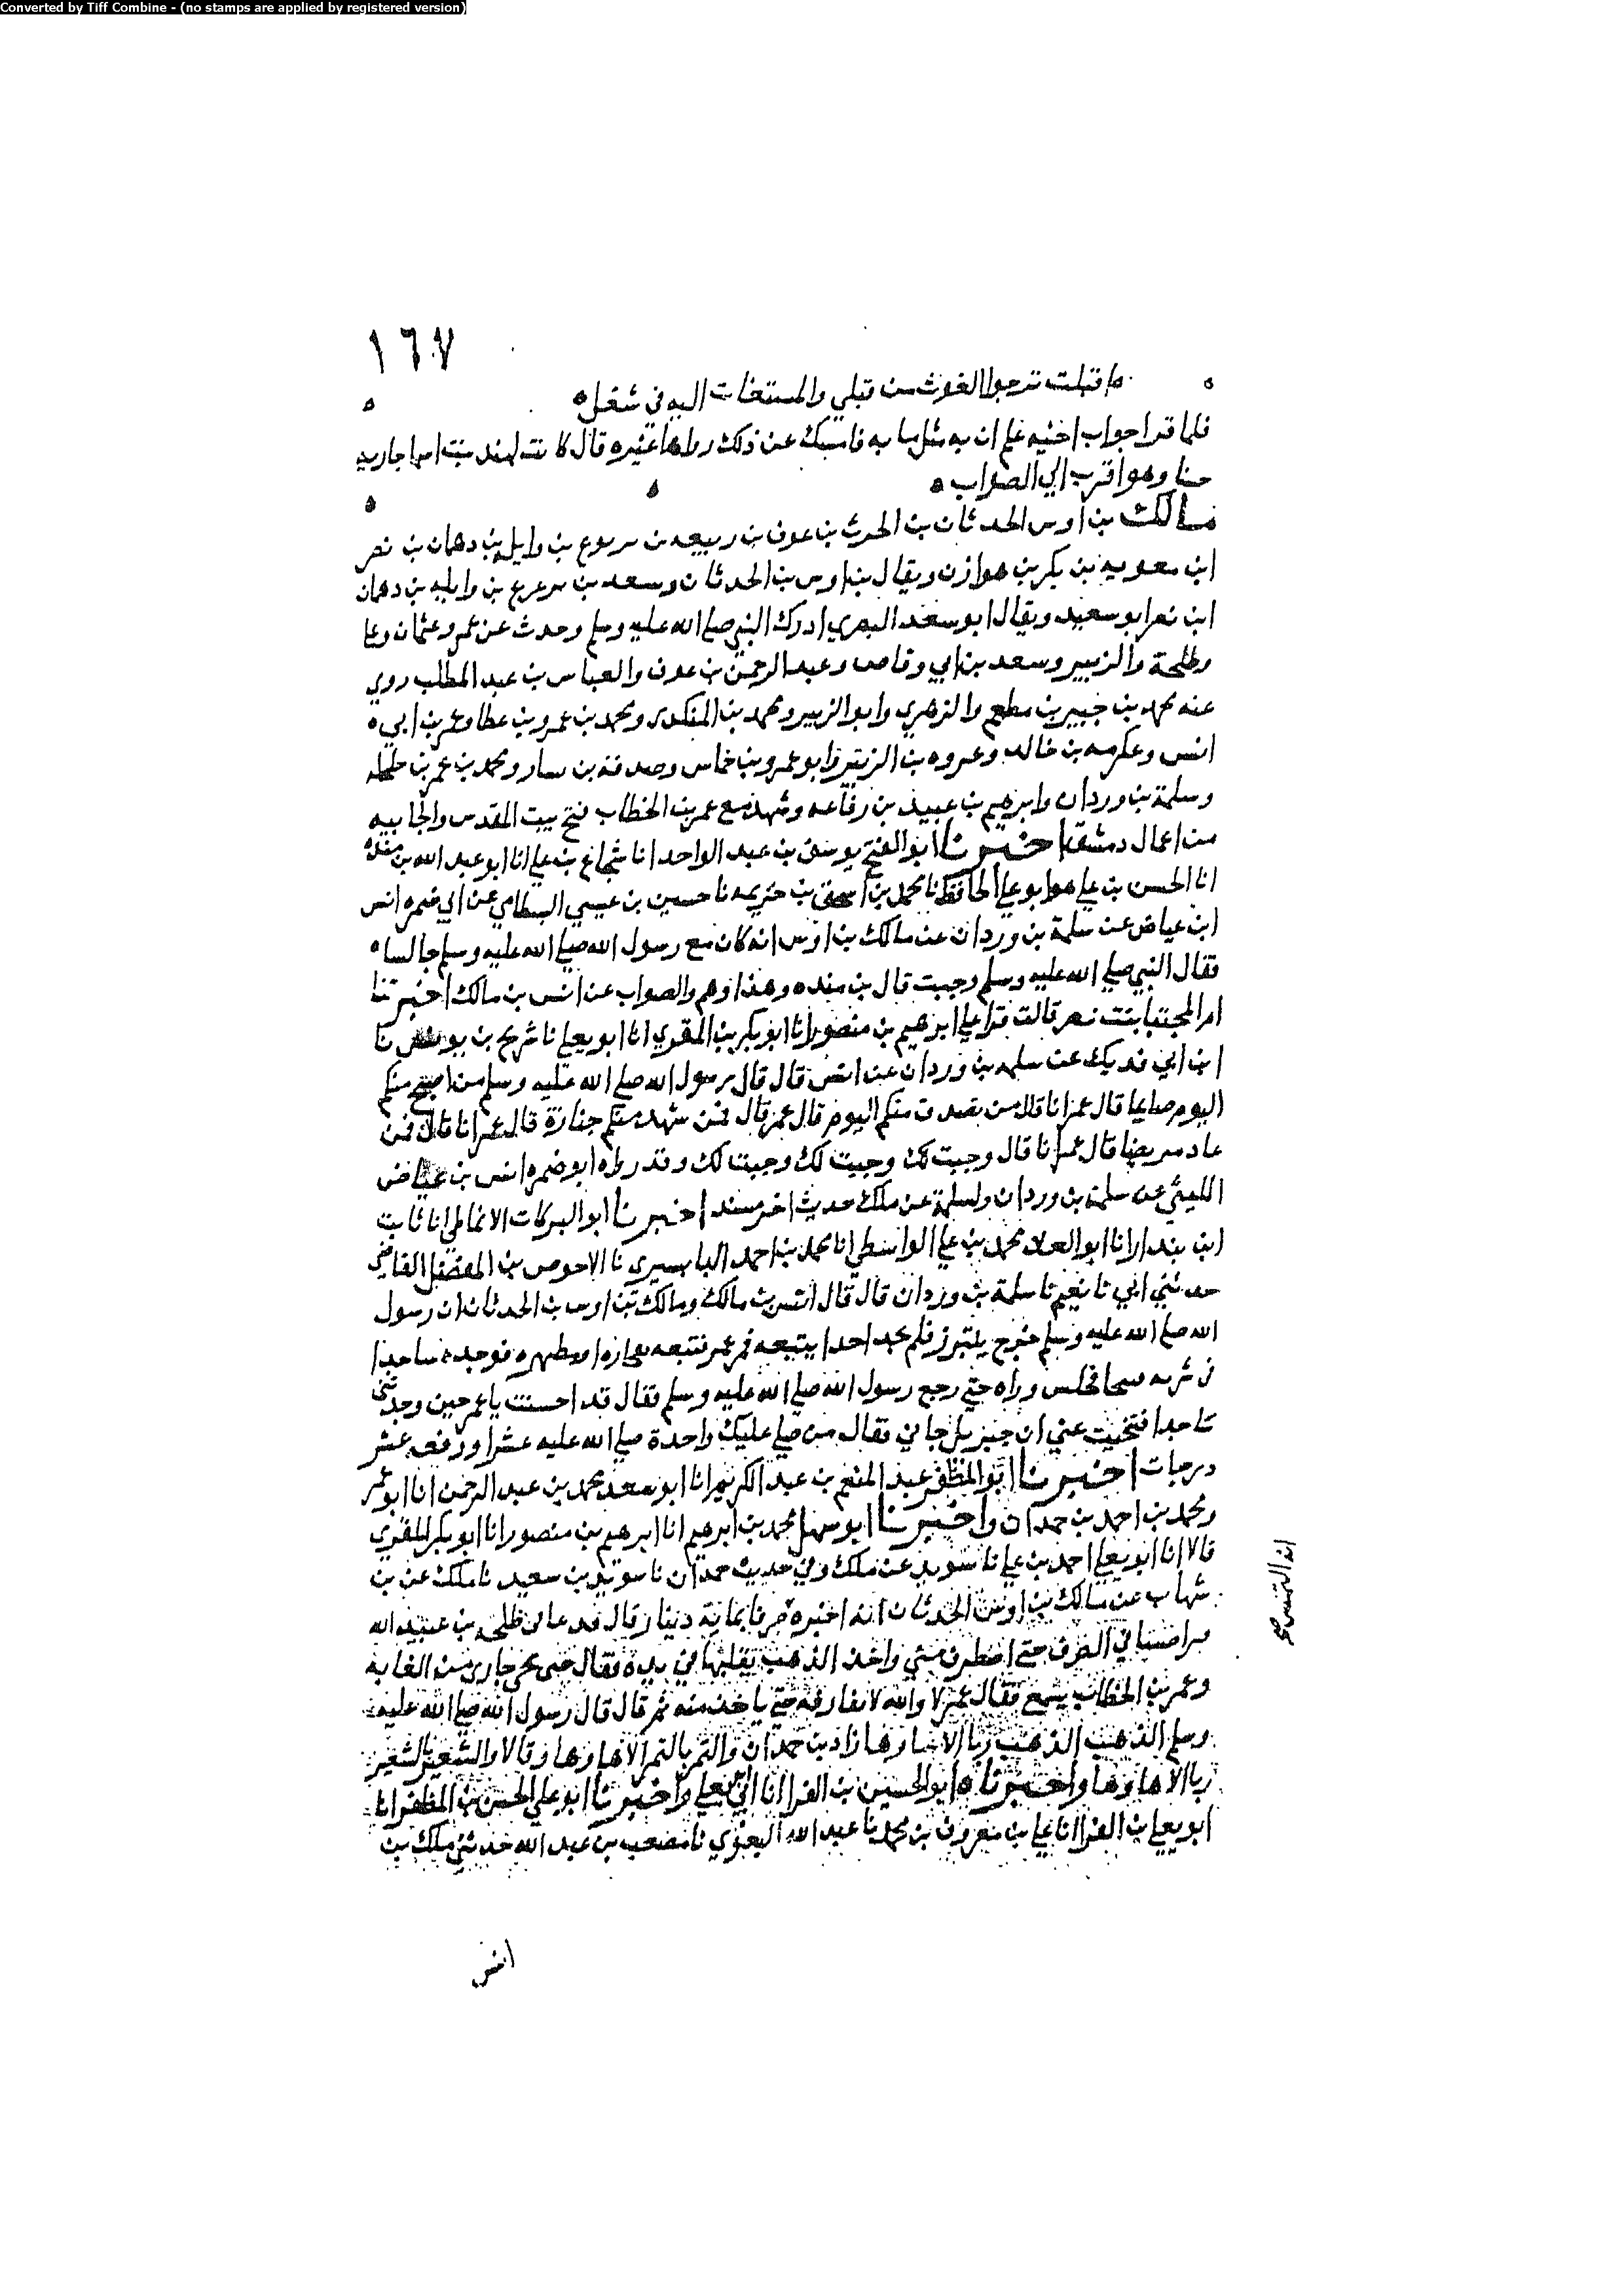 Converted by Tiff Combine - (no stamps are applied by registered version)
١٦٧
ما قبلت ترجوا الغوث من قبلي والمستغاث اليه في شغل
فلما قرا جواب اخيه علم ان به مثل ما به فامسك عن ذلك رواها غيره قال كانت لهند بنت اسما جاريه
حنا وهو اقرب الي الصواب
مالك بن اوس الحدثان بن الحرث بن عوف بن ربيعه بن يربوع بن وايله بن دهمان بن نصر
ابن معويه بن بكر بن هوازن ويقال بن اوس بن الحدثان وسعد بن يربوع بن وايله بن دهمان
ابن نصر ابو سعيد ويقال ابو سعد البصري ادرك النبي صلي الله عليه وسلم وحدث عن عمر وعثمان وعلي
وطلحة والزبير وسعد بن ابي وقاص وعبد الرحمن بن عوف والعباس بن عبد المطلب روي
عنه محمد بن جبير بن مطعم والزهري وابو الزبير ومحمد بن المنكدر ومحمد بن عمرو بن عطا وعمر بن ابي
انس وعكرمه بن خالد وعروه بن الزبير وابو عمرو بن خماس وصدقه بن يسار ومحمد بن عمر بن حلحله
وسلمة بن وردان وابرهيم بن عبيد بن رفاعه وشهد مع عمر بن الخطاب فتح بيت المقدس والجابيه
من اعمال دمشق اخبرنا ابو الفتح يوسف بن عبد الواحد انا شجاع بن علي انا ابو عبد الله بن منده
انا الحسن بن علي هو ابو علي الحافظ نا محمد بن اسحق بن خزيمه نا حسين بن عيسي البسطامي عن ابي ضمره انس
ابن عياض عن سلمة بن وردان عن مالك بن اوس انه كان مع رسول الله صلي الله عليه وسلم جالسا
فقال النبي صلي الله عليه وسلم وجبت قال بن منده وهذا وهم والصواب عن انس بن مالك اخبرتنا
ام المجتبا بنت نصر قالت قرا علي ابرهيم بن منصور انا ابو بكر بن المقري انا ابو يعلي نا شريح بن يونس نا
ابن ابي فديك عن سلمه بن وردان عن انس قال قال رسول الله صلي الله عليه وسلم من اصبح منكم
اليوم صايما قال عمر انا قال من تصدق منكم اليوم قال عمر قال فمن شهد منكم جنازة قال عمر انا قال فمن
عاد مريضا قال عمر انا قال وجبت لك وجبت لك وجبت لك وقد رواه ابو ضمره انس بن عياض
الليثي عن سلمة بن وردان ولسلمة عن ملك حديث اخر مسند اخبرنا ابو البركات الانماطي انا ثابت
ابن بندار انا ابو العلا محمد بن علي الواسطي انا محمد بن احمد البابسيري نا الاحوص بن المفضل القاضي
حدثني ابي نا نعيم نا سلمة بن وردان قال قال انس بن مالك ومالك بن اوس بن الحدثان ان رسول
الله صلي الله عليه وسلم خرج يتبرز فلم يجد احدا يتبعه فمر عمر فتبعه بفخاره او مطهره فوجده ساجدا
في شربه فجلس وراه حتي رجع رسول الله صلي الله عليه وسلم فقال قد احسنت يا عمر حين وجدتني
ساجدا فتنحيت عني ان جبريل جاني فقال من صلي عليك واحدة صلي الله عليه عشرا ورفعه عشر
درجات اخبرنا ابو المظفر عبد المنعم بن عبد الكريم انا ابو سعد محمد بن عبد الرحمن انا ابو عمر
ومحمد بن احمد بن حمدان واخبرنا ابو سهل محمد بن ابرهيم انا ابرهيم بن منصور انا ابو بكر المقري
قالا انا ابو يعلي احمد بن علي نا سويد عن ملك وفي حديث حمدان نا سويد بن سعيد نا ملك عن بن
شهاب عن مالك بن اوس الحدثان انه اخبره صرفا بماية دينار قال فدعاني طلحه بن عبيد الله
فراضنا في الصرف حتي اصطرف مني واخذ الذهب يقلبها في يده فقال حتي يجي جاري من الغابة
وعمر بن الخطاب يسمع فقال عمر لا والله لا تفارقه حتي ياخذ منه ثم قال قال رسول الله صلي الله عليه
وسلم الذهب الذهب ربا الا ها وها زاد بن حمدان والتمر بالتمر الا ها وها وقالا والشعير بالشعير
ربا الا ها وها واخبرنا ابو الحسين بن الفرا انا ابي يعلي واخبرنا ابو علي الحسن بن المظفر انا
ابو يعلي بن الفرا انا علي بن معروف بن محمد نا عبد الله البغوي نا مصعب بن عبد الله حدثني ملك بن
انه التمس صح
انس